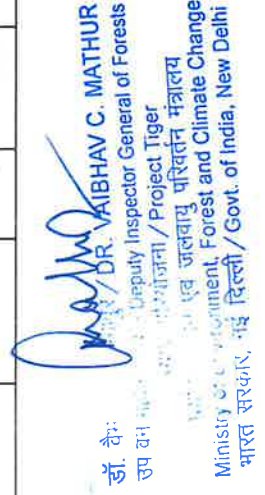 डॉ. / DR. VAIBHAV C. MATHUR
उप वन / Deputy Inspector General of Forests
/ Project Tiger
एवं जलवायु परिवर्तन मंत्रालय
Ministry of Forest and Climate Change
भारत सरकार, नई दिल्ली / Govt. of India, New Delhi